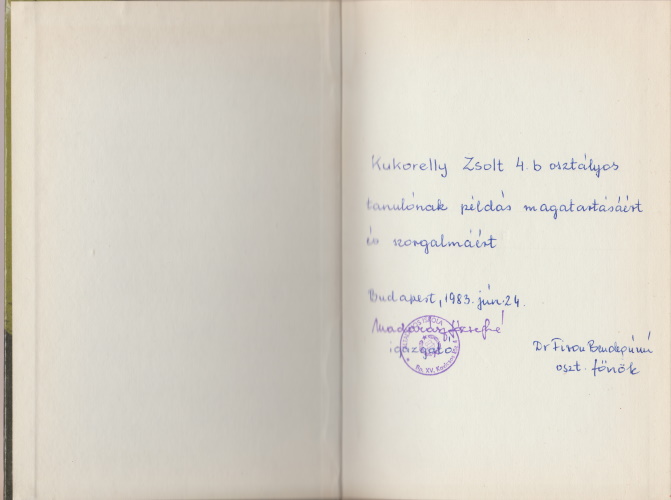 Kukorelly Zsolt 4. b osztályos
tanulónak példás magatartásáért
és szorgalmáért
Budapest, 1983. jún. 24.
Madarász Józsefné
igazgató
ISKOLA
Bp. XV.
Dr
oszt. főnök